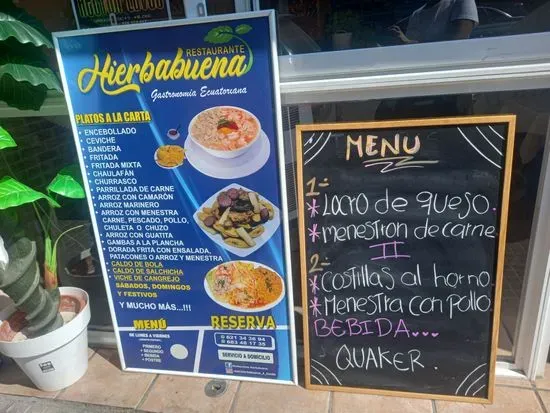 RESTAURANTE
Hierbabuena
Gastronomía Ecuatoriana
PLATOS A LA CARTA
• ENCEBOLLADO
• CEVICHE
• BANDERA
• FRITADA
• FRITADA MIXTA
• CHAULAFÁN
• CHURRASCO
• PARRILLADA DE CARNE
• ARROZ CON CAMARÓN
• ARROZ MARINERO
• ARROZ CON MENESTRA
CARNE, PESCADO, POLLO,
CHULETA O CHUZO
• ARROZ CON GUATITA
• GAMBAS A LA PLANCHA
• DORADA FRITA CON ENSALADA,
PATACONES O ARROZ Y MENESTRA
• CALDO DE BOLA
• CALDO DE SALCHICHA
• VICHE DE CANGREJO
SÁBADOS, DOMINGOS
Y FESTIVOS
Y MUCHO MÁS...!!!
MENÚ
DE LUNES A VIERNES
PRIMERO
• SEGUNDO
• BEBIDA
• POSTRE
RESERVA
SERVICIO A DOMICILIO
MENU
1-
* Locro de queso.
* menestron de carne
II
2-
* Costillas al horno
* Menestra con pollo
BEBIDA...
QUAKER.